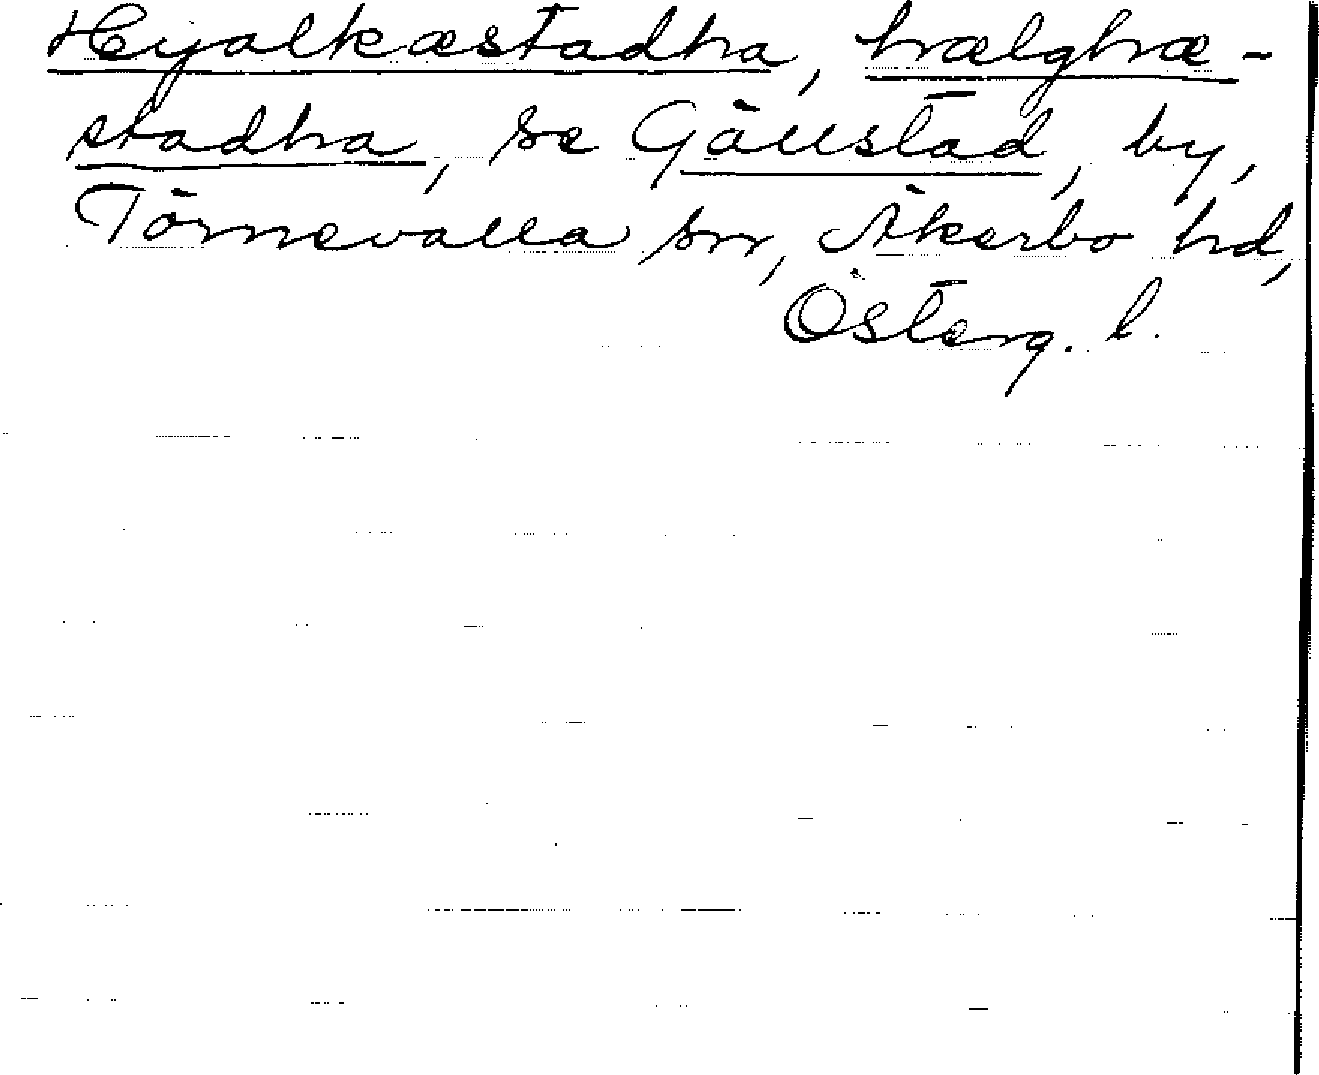 Heyalkæstadha, hælghæ-
stadha, se Gällstad, by,
Törnevalla sn, Åkerbo hd,
Österg. l.